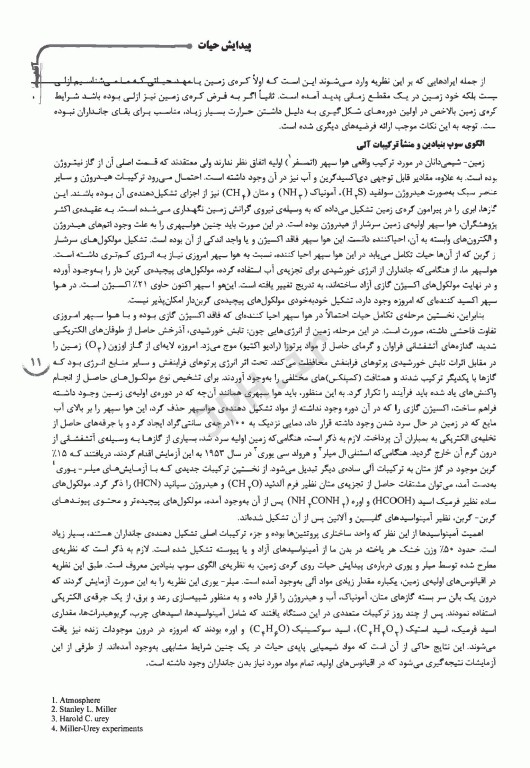 پیدایش حیات
از جمله ایرادهایی که بر این نظریه وارد می‌شوند این است که اولاً کره‌ی زمین یا مهد حیاتی که ما می‌شناسیم ازلی
نیست بلکه خود زمین در یک مقطع زمانی پدید آمده است. ثانیاً اگر به فرض کره‌ی زمین نیز ازلی بوده باشد شرایط
کره‌ی زمین بالاخص در اولین دوره‌های شکل‌گیری به دلیل داشتن حرارت بسیار زیاد، مناسب برای بقای جانداران نبوده
است. توجه به این نکات موجب ارائه فرضیه‌های دیگری شده است.
الگوی سوپ بنیادین و منشأ ترکیبات آلی
زمین- شیمی‌دانان در مورد ترکیب واقعی هوا سپهر (اتمسفر۱) اولیه اتفاق نظر ندارند ولی معتقدند که قسمت اصلی آن از گاز نیتروژن
بوده است. به علاوه، مقادیر قابل توجهی دی‌اکسیدکربن و آب نیز در آن وجود داشته است. احتمال می‌رود ترکیبات هیدروژن و سایر
عناصر سبک به‌صورت هیدروژن سولفید (H۲S)، آمونیاک (NH۳) و متان (CH۴) نیز از اجزای تشکیل‌دهنده‌ی آن بوده باشند. این
گازها، ابری را در پیرامون کره‌ی زمین تشکیل می‌داده که به وسیله‌ی نیروی گرانش زمین نگهداری می‌شده است. به عقیده‌ی اکثر
پژوهشگران، هوا سپهر اولیه‌ی زمین سرشار از هیدروژن بوده است. در این صورت باید چنین هواسپهری را به علت وجود اتم‌های هیدروژن
و الکترون‌های وابسته به آن، احیاکننده دانست. این هوا سپهر فاقد اکسیژن و یا واجد اندکی از آن بوده است. تشکیل مولکول‌های سرشار
از کربن که از آن‌ها حیات تکامل می‌یابد در این هوا سپهر احیا کننده، نسبت به هوا سپهر امروزی نیاز به انرژی کم‌تری داشته است.
هواسپهر ما، از هنگامی‌که جانداران از انرژی خورشیدی برای تجزیه‌ی آب استفاده کرده، مولکول‌های پیچیده‌ی کربن دار را به‌وجود آورده
و در نهایت مولکول‌های اکسیژن گازی آزاد ساخته‌اند، به تدریج تغییر یافته است. این‌هوا سپهر اکنون حاوی ۲۱٪ اکسیژن است. در هوا
سپهر اکسید کننده‌ای که امروزه وجود دارد، تشکیل خودبه‌خودی مولکول‌های پیچیده‌ی کربن‌دار امکان‌پذیر نیست.
بنابراین، نخستین مرحله‌ی تکامل حیات احتمالاً در هوا سپهر احیا کننده‌ای که فاقد اکسیژن گازی بوده و با هوا سپهر امروزی
تفاوت فاحشی داشته، صورت است. در این مرحله، زمین از انرژی‌هایی چون: تابش خورشیدی، آذرخش حاصل از طوفان‌های الکتریکی
شدید، گدازه‌های آتشفشانی فراوان و گرمای حاصل از مواد پرتوزا (رادیو اکتیو) موج می‌زد. امروزه لایه‌ای از گاز اوزون (O۳) زمین را
در مقابل اثرات تابش خورشیدی پرتوهای فرابنفش محافظت می‌کند. تحت اثر انرژی پرتوهای فرابنفش و سایر منابع انرژی بود که
گازها با یکدیگر ترکیب شدند و همتافت (کمپلکس)های مختلفی را به‌وجود آوردند. برای تشخیص نوع مولکول‌های حاصل از انجام
واکنش‌های یاد شده باید فرآیند را تکرار کرد. به این منظور، باید هوا سپهری همانند آن‌چه که در دوره‌ی اولیه‌ی زمین وجود داشته
فراهم ساخت، اکسیژن گازی را که در آن دوره وجود نداشته از مواد تشکیل دهنده‌ی هواسپهر حذف کرد، این هوا سپهر را بر بالای آب
مایع که در زمین در حال سرد شدن وجود داشته قرار داد، دمایی نزدیک به ۱۰۰درجه‌ی سانتی‌گراد ایجاد کرد و با جرقه‌های حاصل از
تخلیه‌ی الکتریکی به بمباران آن پرداخت. لازم به ذکر است، هنگامی‌که زمین اولیه سرد شد، بسیاری از گازها به وسیله‌ی آتشفشانی از
درون گرم آن خارج گردید. هنگامی‌که استنلی ال میلر۲ و هرولد سی یوری۳ در سال ۱۹۵۳ به این آزمایش اقدام کردند، دریافتند که ۱۵٪
کربن موجود در گاز متان به ترکیبات آلی ساده‌ی دیگر تبدیل می‌شود. از نخستین ترکیبات جدیدی که با آزمایش‌های میلر- یوری۴
به‌دست آمد، می‌توان مشتقات حاصل از تجزیه‌ی متان نظیر فرم آلدئید (CH۲O) و هیدروژن سیانید (HCN) را ذکر کرد. مولکول‌های
ساده نظیر فرمیک اسید (HCOOH) و اوره (NH۲CONH۲) پس از آن به‌وجود آمده، مولکول‌های پیچیده‌تر و محتوی پیوندهای
کربن- کربن، نظیر آمینواسیدهای گلیسین و آلانین پس از آن تشکیل شده‌اند.
اهمیت آمینواسیدها از این نظر که واحد ساختاری پروتئین‌ها بوده و جزء ترکیبات اصلی تشکیل دهنده‌ی جانداران هستند، بسیار زیاد
است. حدود ۵۰٪ وزن خشک هر یاخته در بدن ما از آمینواسیدهای آزاد و یا پیوسته تشکیل شده است. لازم به ذکر است که نظریه‌ی
مطرح شده توسط میلر و یوری درباره‌ی پیدایش حیات روی کره‌ی زمین، به نظریه‌ی الگوی سوپ بنیادین معروف است. طبق این نظریه
در اقیانوس‌های اولیه‌ی زمین، یکباره مقدار زیادی مواد آلی به‌وجود آمده است. میلر- یوری این نظریه را به این صورت آزمایش کردند که
درون یک بالن سر بسته گازهای متان، آمونیاک، آب و هیدروژن را قرار داده و به منظور شبیه‌سازی رعد و برق، از یک جرقه‌ی الکتریکی
استفاده نمودند. پس از چند روز ترکیبات متعددی در این دستگاه یافتند که شامل آمینواسیدها، اسیدهای چرب، کربوهیدرات‌ها، مقداری
اسید فرمیک، اسید استیک (C۲H۴O۲)، اسید سوکسینیک (C۴H۶O۴) و اوره بودند که امروزه در درون موجودات زنده نیز یافت
می‌شوند. این نتایج حاکی از آن است که مواد شیمیایی پایه‌ی حیات در یک چنین شرایط مشابهی به‌وجود آمده‌اند. از طرفی از این
آزمایشات نتیجه‌گیری می‌شود که در اقیانوس‌های اولیه، تمام مواد مورد نیاز بدن جانداران وجود داشته است.
۱۱
1. Atmosphere
2. Stanley L. Miller
3. Harold C. urey
4. Miller-Urey experiments